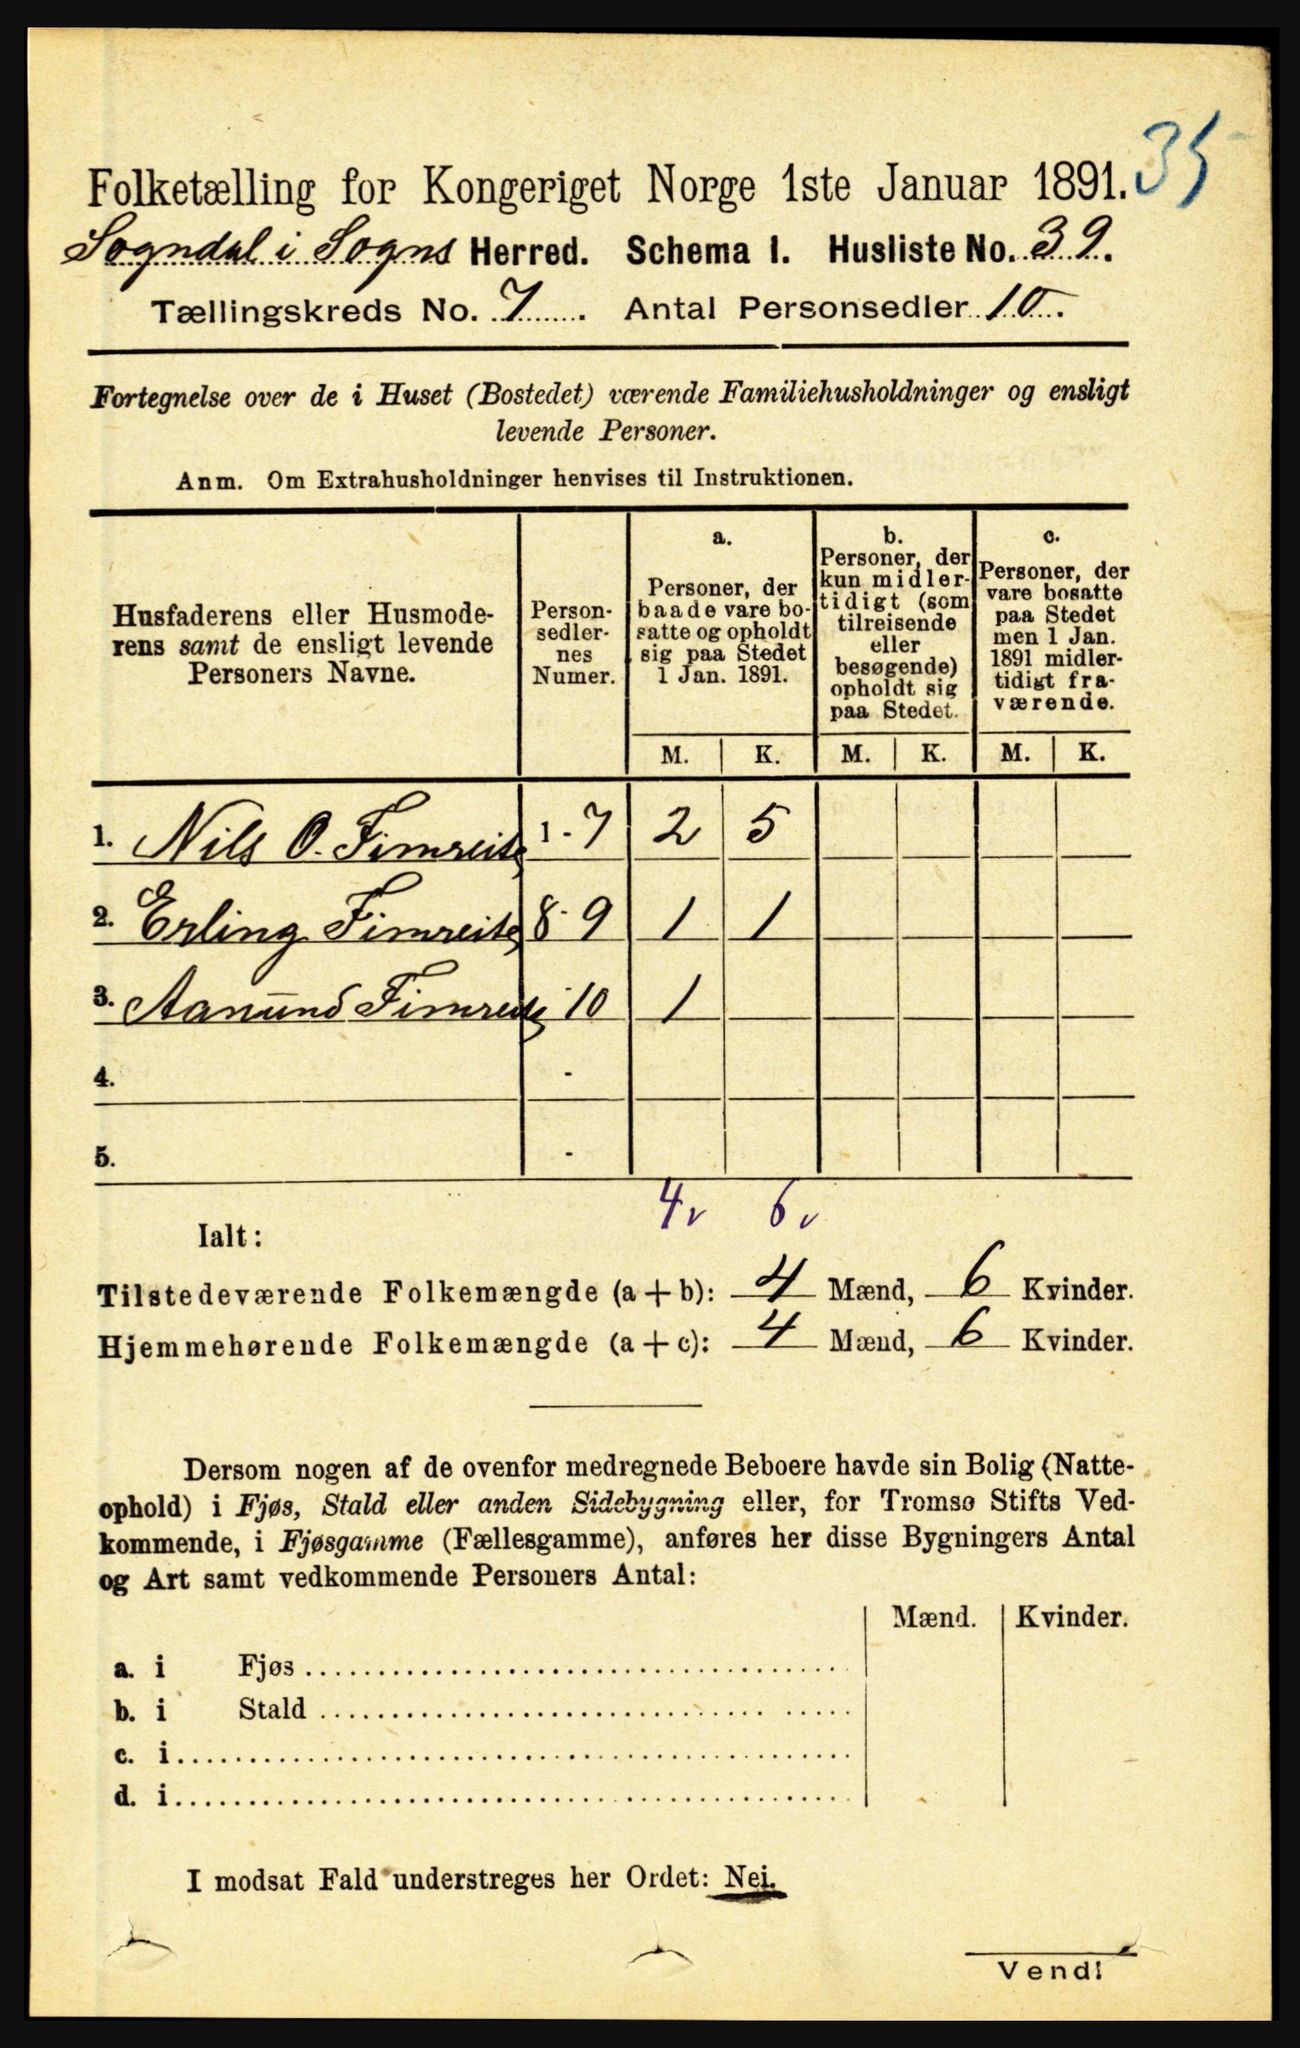 35
Folketælling for Kongeriget Norge 1ste Januar 1891.
Sogndal i Sogns Herred. Schema I. Husliste No. 39.
Tællingskreds No. 7. Antal Personsedler 10.
Fortegnelse over de i Huset (Bostedet) værende Familiehusholdninger og ensligt
levende Personer.
Anm. Om Extrahusholdninger henvises til Instruktionen.
Husfaderens eller Husmode-
rens samt de ensligt levende
Personers Navne.
Person-
sedler-
nes
Numer.
a.
Personer, der
baade vare bo-
satte og opholdt
sig paa Stedet
1 Jan. 1891.
b.
Personer, der
kun midler-
tidigt (som
tilreisende
eller
besøgende)
opholdt sig
paa Stedet.
c.
Personer, der
vare bosatte
paa Stedet
men 1 Jan.
1891 midler-
tidigt fra-
værende.
M. K. M. K. M. K.
1. Nils O. Fimreite 1 - 7 2 5
2. Erling Fimreite 8 - 9 1 1
3. Aanund Fimreite - 10 1
4. -
5. -
4v 6v
Ialt:
Tilstedeværende Folkemængde (a + b): 4 Mænd, 6 Kvinder.
Hjemmehørende Folkemængde (a + c): 4 Mænd, 6 Kvinder.
Dersom nogen af de ovenfor medregnede Beboere havde sin Bolig (Natte-
ophold) i Fjøs, Stald eller anden Sidebygning eller, for Tromsø Stifts Ved-
kommende, i Fjøsgamme (Fællesgamme), anføres her disse Bygningers Antal
og Art samt vedkommende Personers Antal:
Mænd. Kvinder.
a. i Fjøs
b. i Stald
c. i
d. i
I modsat Fald understreges her Ordet: Nei.
Vend!